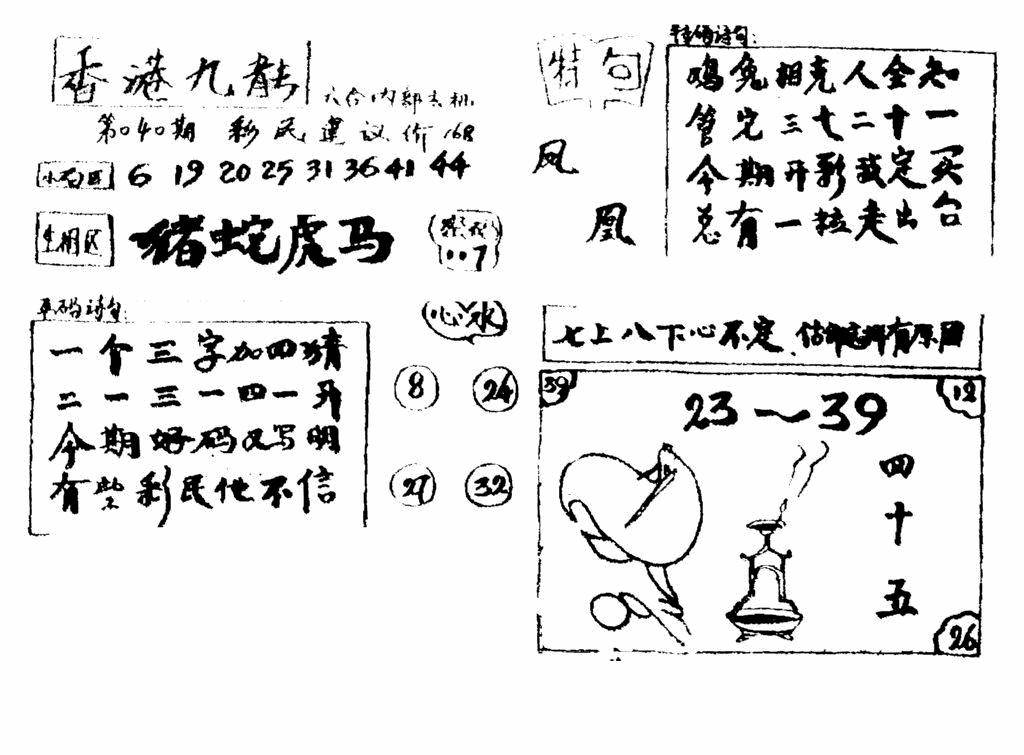 香港九龙
六合内部玄机
第040期 彩民建议价168
6 19 20 25 31 36 41 44
生肖区
猪蛇虎马
7
平码诗句:
一个三字加四猜
二一三一四一开
今期好码又写明
有些彩民他不信
心水
8 24
27 32
特句
凤
凰
特码诗句:
鸡兔相克人全知
管它三七二十一
今期开彩我定买
总有一粒走出台
七上八下心不定
有原因
39
12
23~39
四十五
26